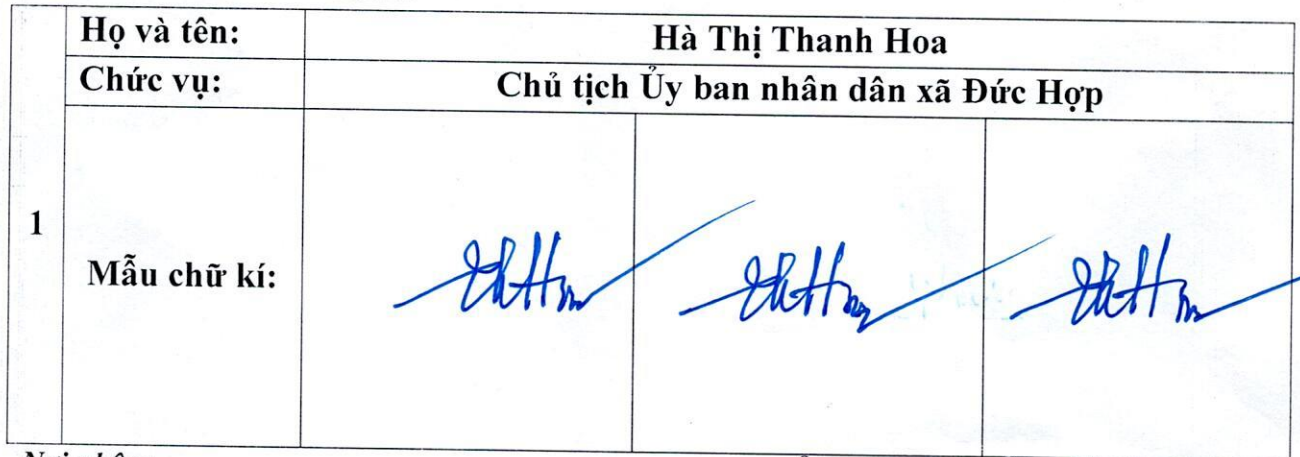 Họ và tên:
Hà Thị Thanh Hoa
Chức vụ:
Chủ tịch Ủy ban nhân dân xã Đức Hợp
1
Mẫu chữ kí: